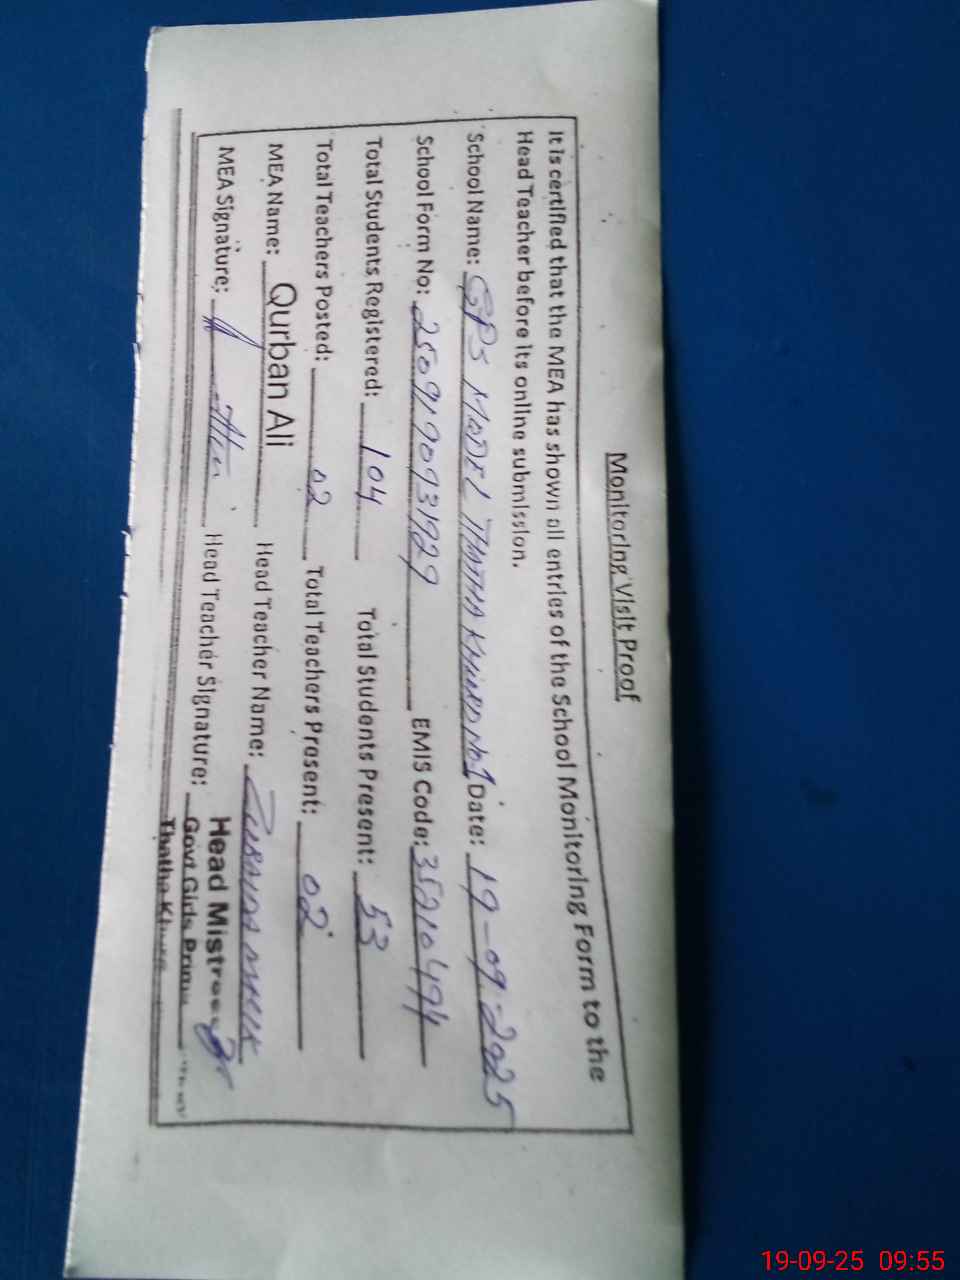 Monitoring Visit Proof
It is certified that the MEA has shown all entries of the School Monitoring Form to the
Head Teacher before its online submission.
School Name: GPS MODEL THATHA KHURD No.1 Date: 19-09-2025
School Form No: 25091909093929 EMIS Code: 35210494
Total Students Registered: 104 Total Students Present: 53
Total Teachers Posted: 02 Total Teachers Present: 02
MEA Name: Qurban Ali Head Teacher Name:
MEA Signature: Head Teacher Signature:
Head Mistress
Govt Girls
Thatha
19-09-25 09:55